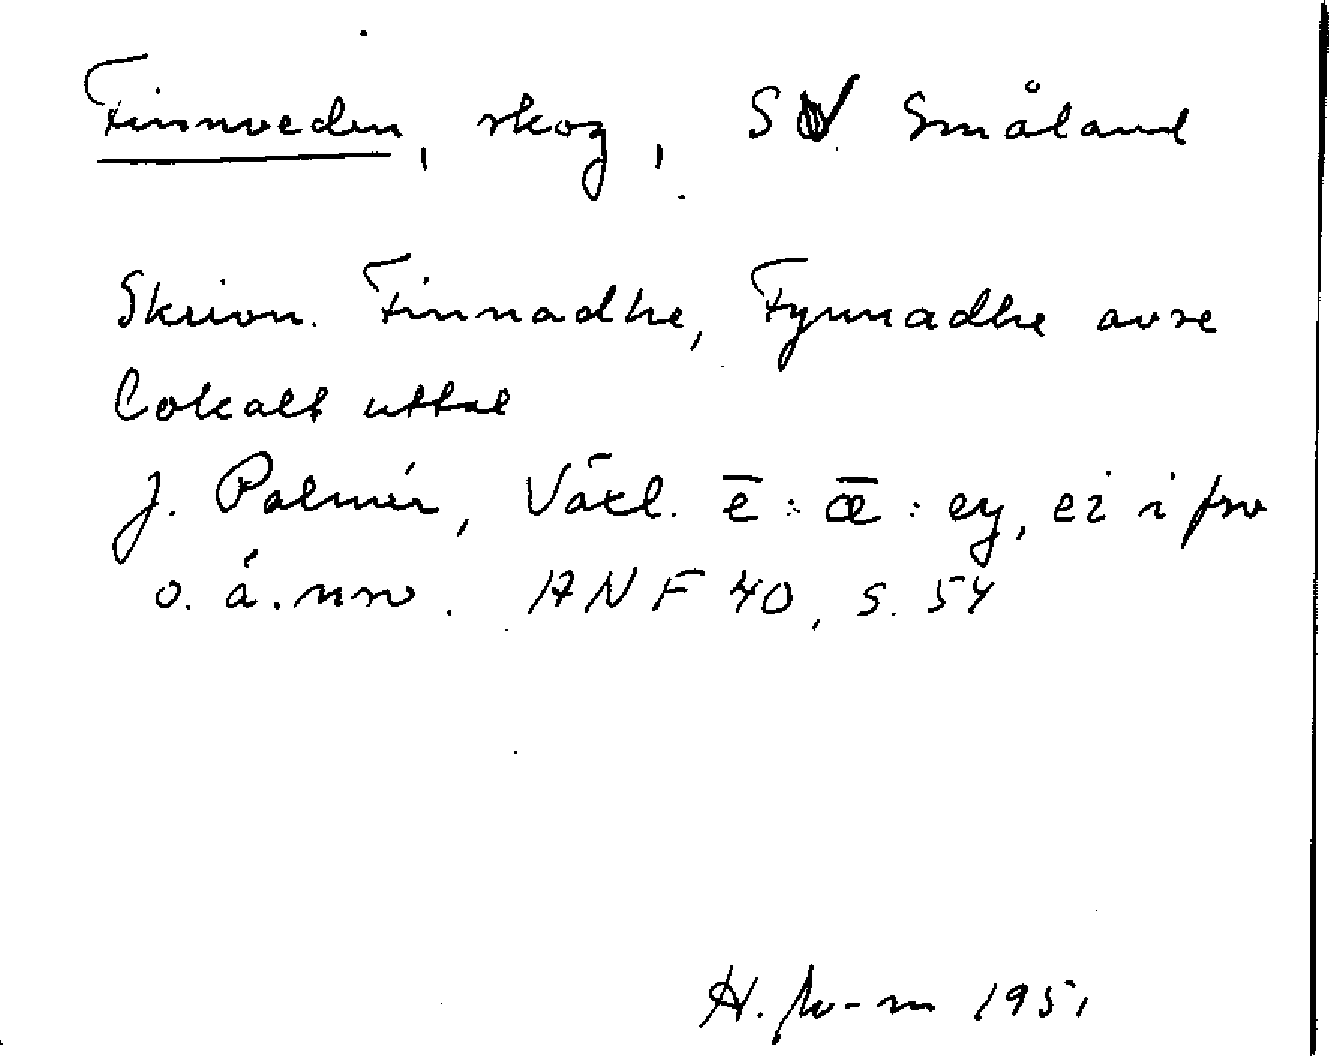 Finnveden, skog, SV Småland
Skrivn. Finnadhe, Fynnadhe avse
lokalt uttal
J. Palmér, Växl. ē : ǣ : ey, ei i fnv
o. ä. nnv. ANF 40, s. 54
H. 1951